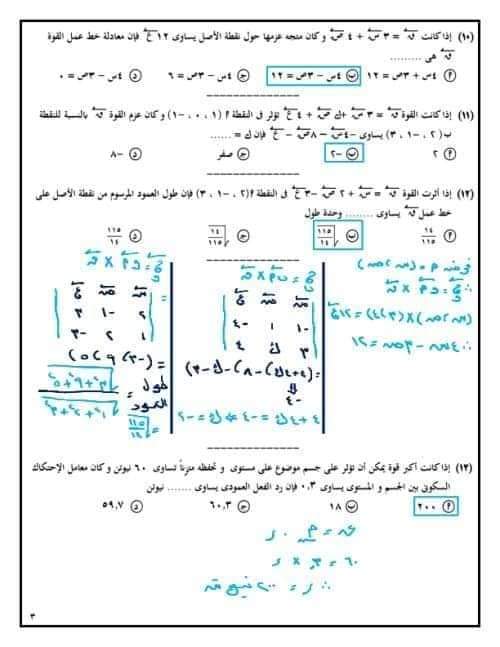 (١٠) إذا كانت ق = ٣ س + ٤ ص وكان متجه عزمها حول نقطة الأصل يساوى ١٢ ع فإن معادلة خط عمل القوة
ق هى .........
أ ٤س + ٣ص = ١٢ ب ٤س − ٣ص = ١٢ ج ٤س − ٣ص = ٦ د ٤س − ٣ص = ٠
(١١) إذا كانت القوة ق = ٣ س + ك ص + ٤ ع تؤثر فى النقطة أ (١ ، ٠ ، −١) وكان عزم القوة ق بالنسبة للنقطة
ب (٢ ، −١ ، ٣) يساوى −٤س − ٨ص − ع فإن ك = ......
أ ٢ ب −٢ ج صفر د −٨
(١٢) إذا أثرت القوة ق = س + ٢ ص − ٣ ع فى النقطة أ (٢ ، −١ ، ٣) فإن طول العمود المرسوم من نقطة الأصل على
خط عمل ق يساوى ........ وحدة طول
أ ١٤/١١٥ ب √(١١٥/١٤) ج √(١٤/١١٥) د ١١٥/١٤
فرض م = (س، ص)
∴ ج = و م × ق
(س، ص) × (٣، ٤) = ١٢ ع
∴ ٤س − ٣ص = ١٢
ج = ب م × ق
س ص ع
−١ ١ −٤
٣ ك ٤
= (٤+٤ك، −٨، −ك−٣)
−٤
٤ + ٤ك = −٤ ك = −٢
ج = و م × ق
س ص ع
٢ −١ ٣
١ ٢ −٣
= (−٣، ٩، ٥)
طول العمود = √(٣²+٩²+٥²) / √(١²+٢²+٣²)
= √(١١٥/١٤)
(١٣) إذا كانت أكبر قوة يمكن أن تؤثر على جسم موضوع على مستوى و تحفظه متزناً تساوى ٦٠ نيوتن وكان معامل الإحتكاك
السكونى بين الجسم و المستوى يساوى ٠,٣ فإن رد الفعل العمودى يساوى ....... نيوتن
أ ٢٠٠ ب ١٨ ج ٦٠,٣ د ٥٩,٧
ق = م س . ر
٦٠ = ٣, × ر
∴ ر = ٢٠٠ نيوتن
٣